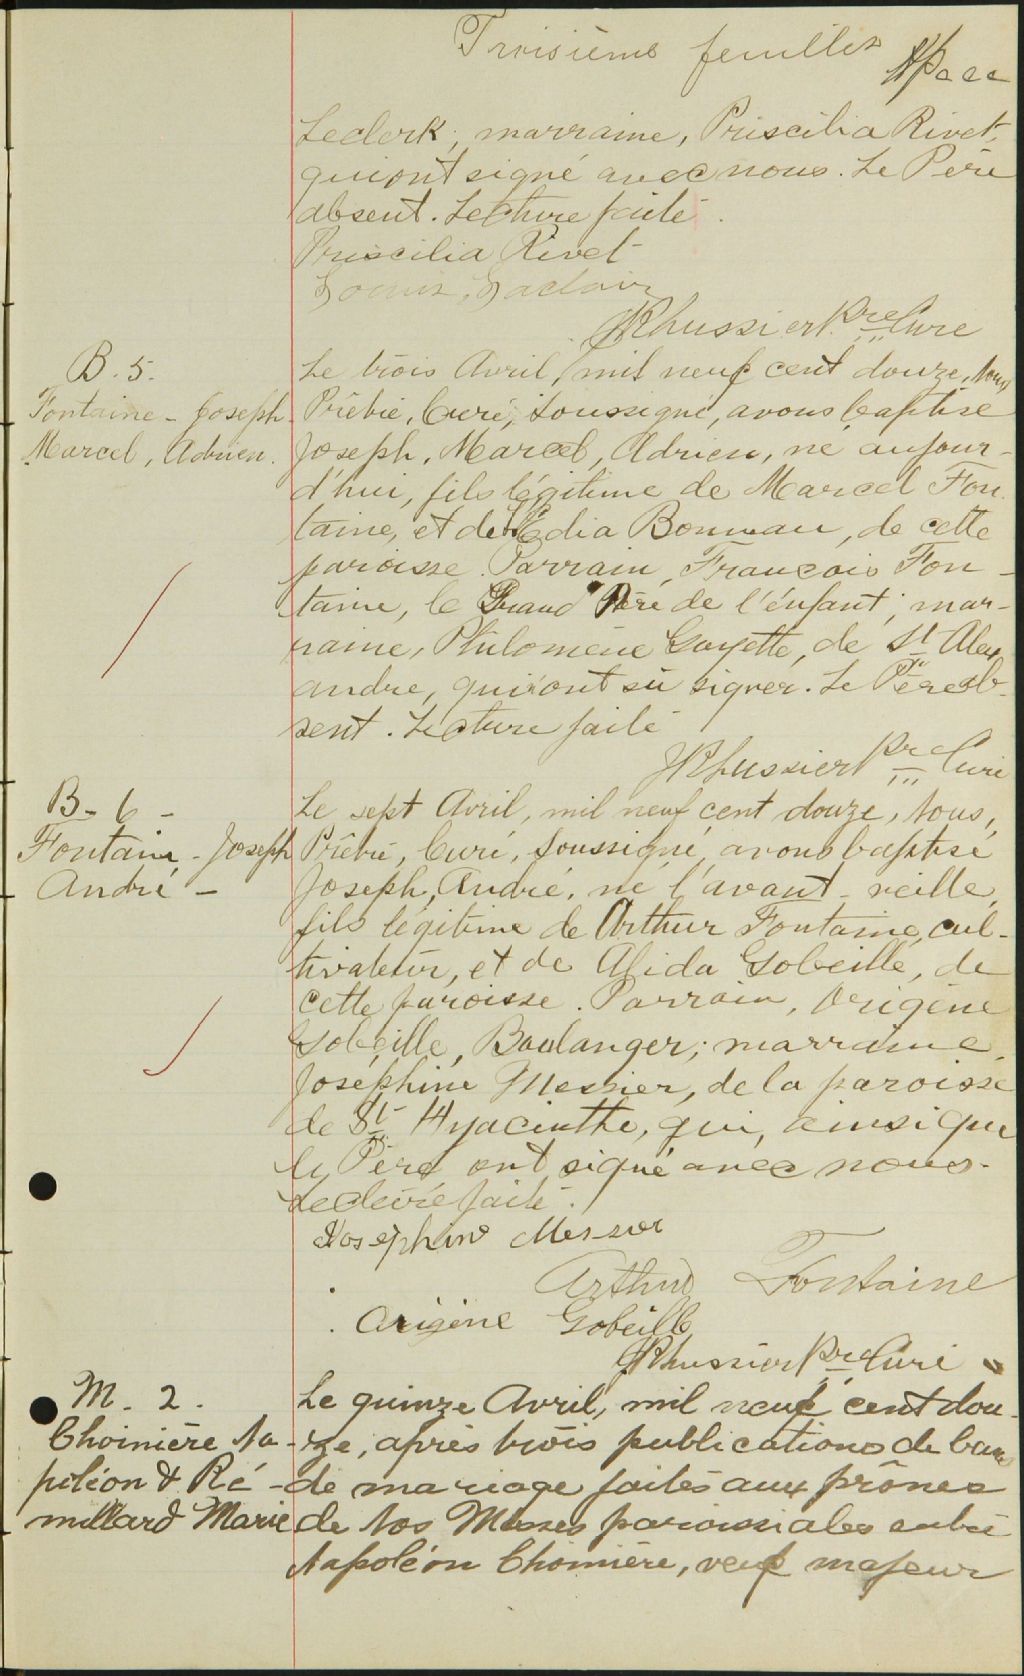 Troisième feuillet
Leclerk, marraine, Priscilia Rivet,
qui ont signé avec nous. Le Père
absent. Lecture faite.
Priscilia Rivet
JRLussier Ptre Curé
B. 5.
Fontaine - Joseph
Marcel, Adrien.
Le trois Avril, mil neuf cent douze, Nous
Prêtre, Curé, soussigné, avons baptisé
Joseph, Marcel, Adrien, né aujour-
d'hui, fils légitime de Marcel Fon-
taine, et de Bonneau, de cette
paroisse. Parrain, François Fon-
taine, le Grand Père de l'enfant; mar-
raine, Philomène Goyette, de St Alex
andre, qui ont su signer. Le Père ab-
sent. Lecture faite
JRLussier Ptre Curé
B - 6 -
Fontaine - Joseph
André -
Le sept Avril, mil neuf cent douze, Nous,
Prêtre, Curé, soussigné, avons baptisé
Joseph, André, né l'avant-veille,
fils légitime de Arthur Fontaine, cul-
tivateur, et de Alida Gobeille, de
cette paroisse. Parrain, Origène
Gobeille, Boulanger; marraine,
Joséphine Messier, de la paroisse
de St Hyacinthe, qui, ainsi que
le Père ont signé avec nous.
Lecture faite.
Josephine Messier
Arthur Fontaine
Origène Gobeille
JRLussier Ptre Curé
M. 2.
Choinière Na-
poléon & Ré-
millard Marie
Le quinze Avril, mil neuf cent dou-
ze, après trois publications de bans
de mariage faites aux prônes
de nos Messes paroissiales entre
Napoléon Choinière, veuf majeur